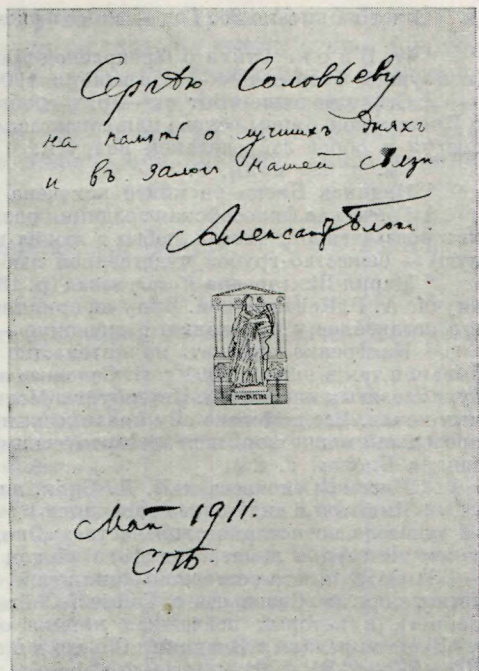 Сергѣю Соловьеву
на память о лучшихъ дняхъ
и въ залогъ нашей связи
Александр Блок.
МУСАГЕТЪ
Май 1911.
СПБ.